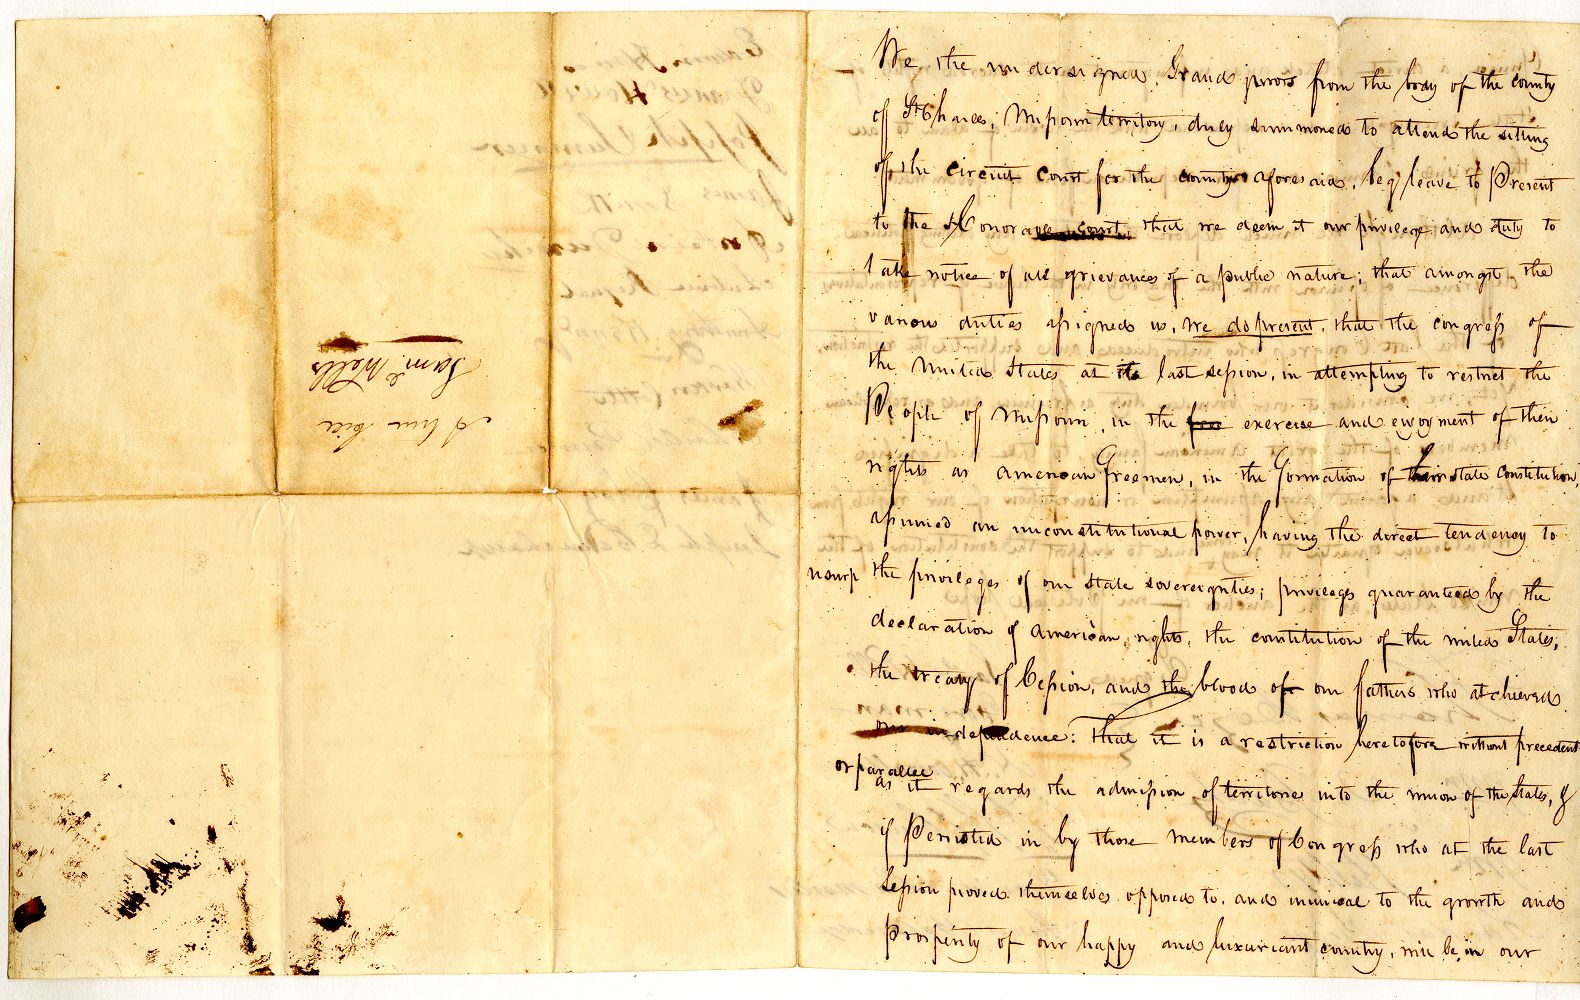 We the undersigned, Grand jurors from the body of the county
of St Charles, Missouri territory, duly summoned to attend the sitting
of the circuit court for the county aforesaid, beg leave to Present
to the Honorable court, that we deem it our privilege and duty to
take notice of all grievances of a public nature; that amongst the
various duties assigned us, we do present, that the congress of
the United States at its last session, in attempting to restrict the
People of Missouri, in the free exercise and enjoyment of their
rights as american Freemen, in the Formation of their state constitution,
assumed an unconstitutional power, having the direct tendency to
usurp the privileges of our state sovereignties; privileges guaranteed by the
declaration of American rights, the constitution of the united States,
the treaty of Cession, and the blood of our fathers who atchieved
our independence: That it is a restriction heretofore without precedent
or parallel
as it regards the admission of territories into the union of the States, &
if Persisted in by those members of Congress who at the last
Session proved themselves opposed to, and inimical to the growth and
prosperity of our happy and luxuriant country, will be, in our
A true bill
Saml. Wells